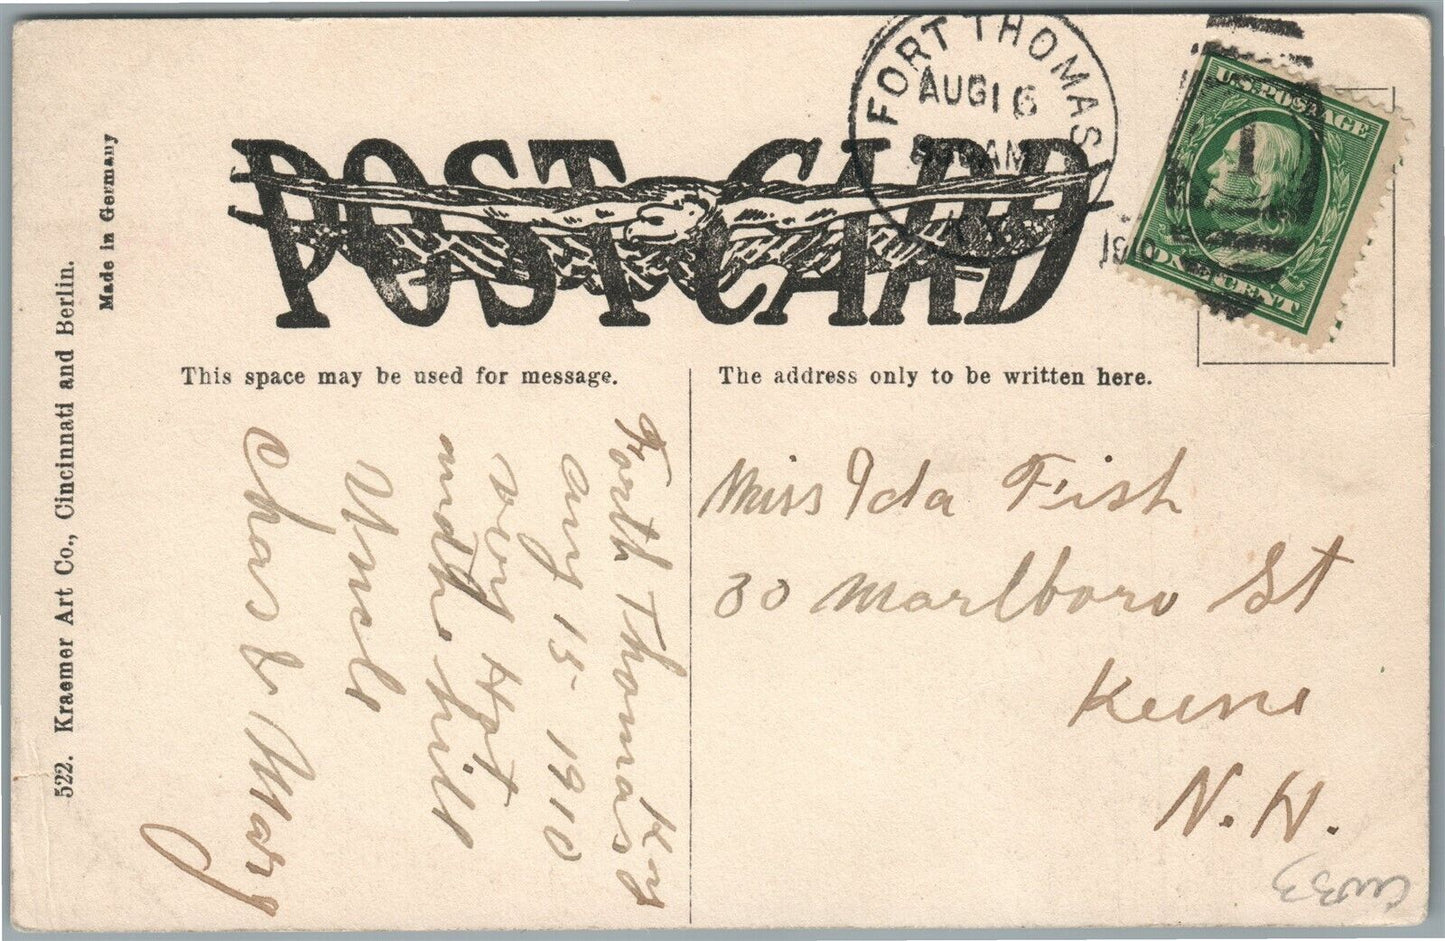 POST CARD
FORT THOMAS
AUG 16
AM
KY.
1910
1
U.S. POSTAGE
ONE CENT
Made in Germany
522. Kraemer Art Co., Cincinnati and Berlin.
This space may be used for message.
Forth Thomas Ky
Aug 15 - 1910
very Hot
and the hill
Uncle
Chas & Mary
The address only to be written here.
Miss Ida Fish
30 Marlboro St
Keene
N.H.